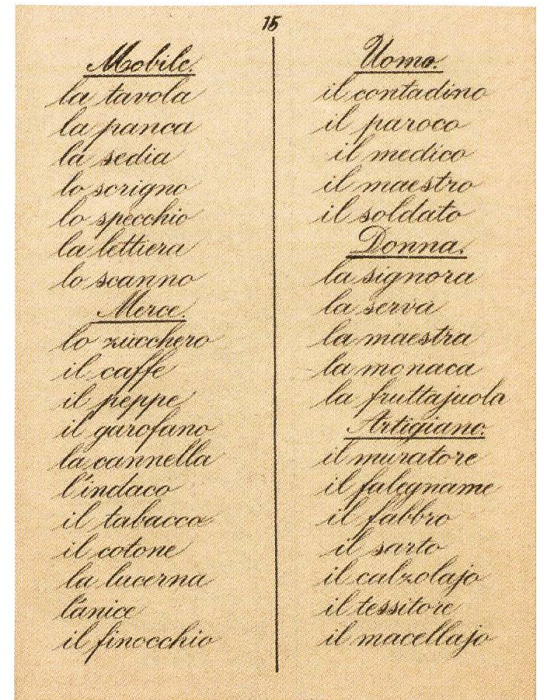 15
Mobile.
la tavola
la panca
la sedia
lo scrigno
lo specchio
la lettiera
lo scanno
Merce.
lo zucchero
il caffe
il peppe
il garofano
la cannella
l'indaco
il tabacco
il cotone
la lucerna
l'anice
il finocchio
Uomo.
il contadino
il paroco
il medico
il maestro
il soldato
Donna.
la signora
la serva
la maestra
la monaca
la fruttajuola
Artigiano.
il muratore
il falegname
il fabbro
il sarto
il calzolajo
il tessitore
il macellajo